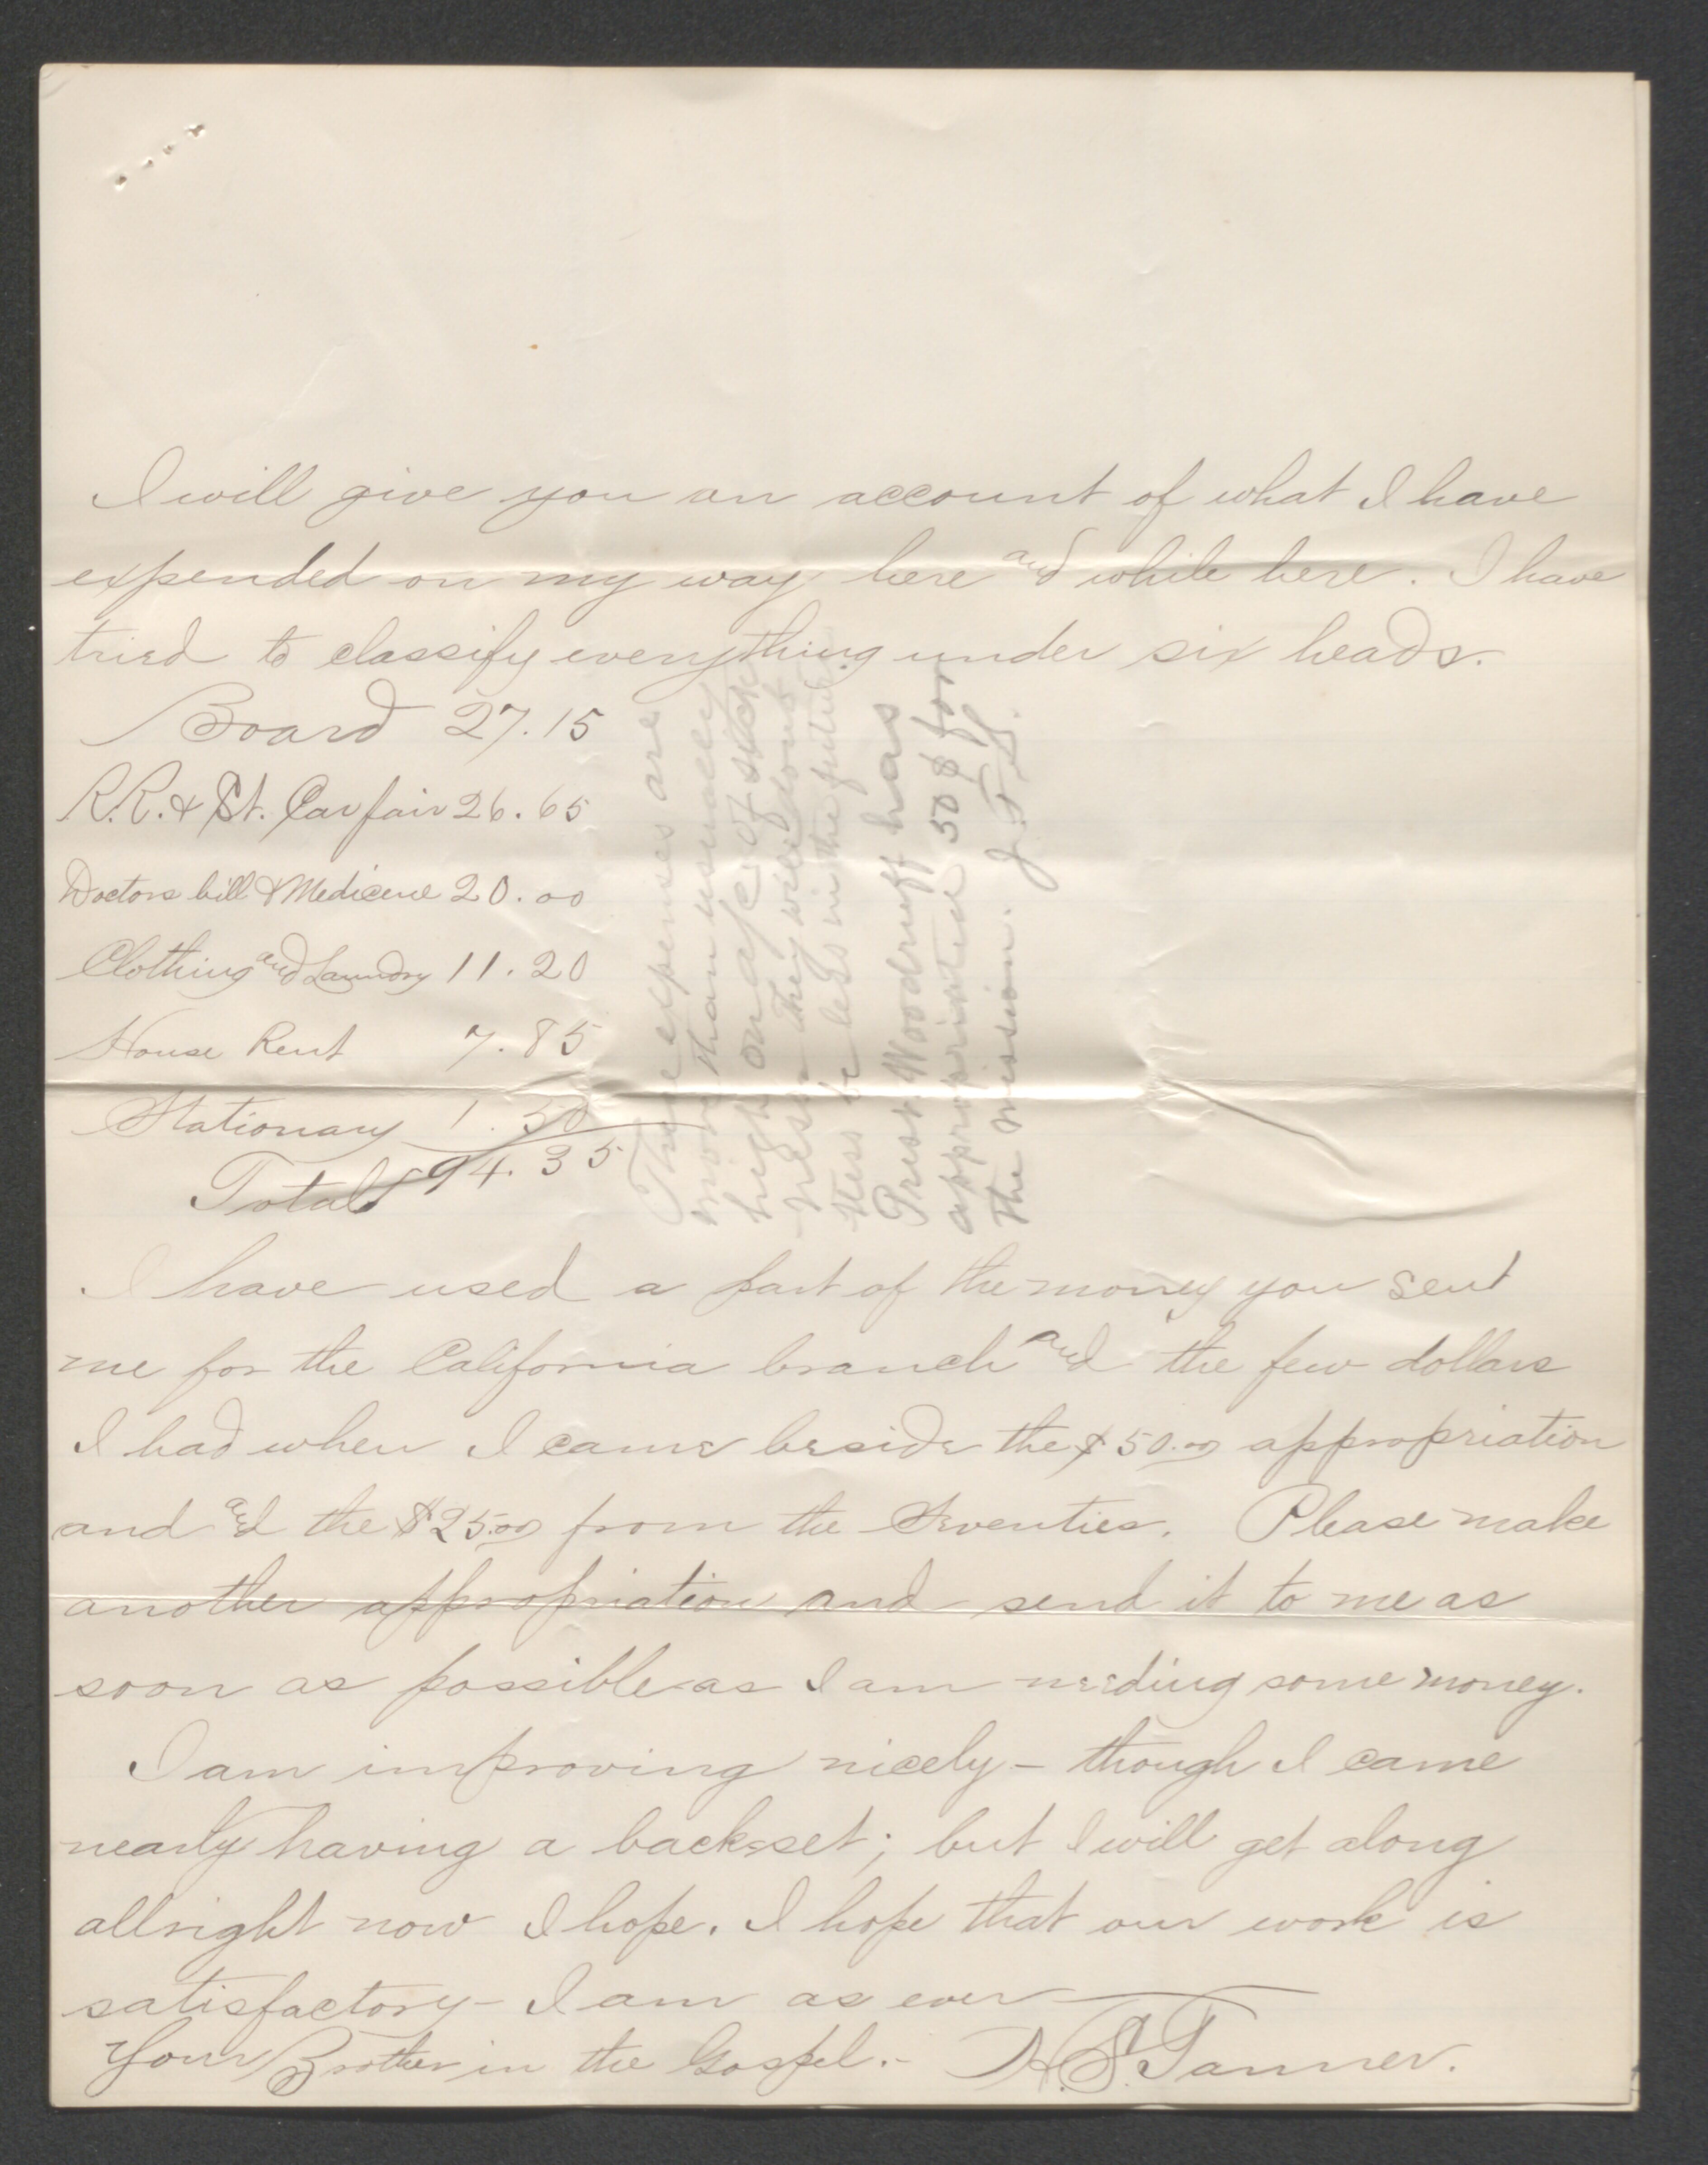 I will give you an account of what I have
expended on my way here and while here. I have
tried to classify everything under six heads.
Board 27.15
R.R. & St. Car fair 26.65
Doctors bill & Medicine 20.00
Clothing and Laundry 11.20
House Rent 7.85
Stationary 1.50
Total $94.35
These expenses are
more than usually
high on a/c of sick
ness. They will doubt
less be less in the future
Prest. Woodruff has
appropriated 50$ for
the mission. J. F. S.
I have used a part of the money you sent
me for the California branch and the few dollars
I had when I came beside the $50.00 appropriation
and and the $25.00 from the Seventies. Please make
another appropriation and send it to me as
soon as possible as I am needing some money.
I am improving nicely – though I came
nearly having a back-set; but I will get along
allright now I hope. I hope that our work is
satisfactory – I am as ever
Your Brother in the Gospel. – H. S. Tanner.